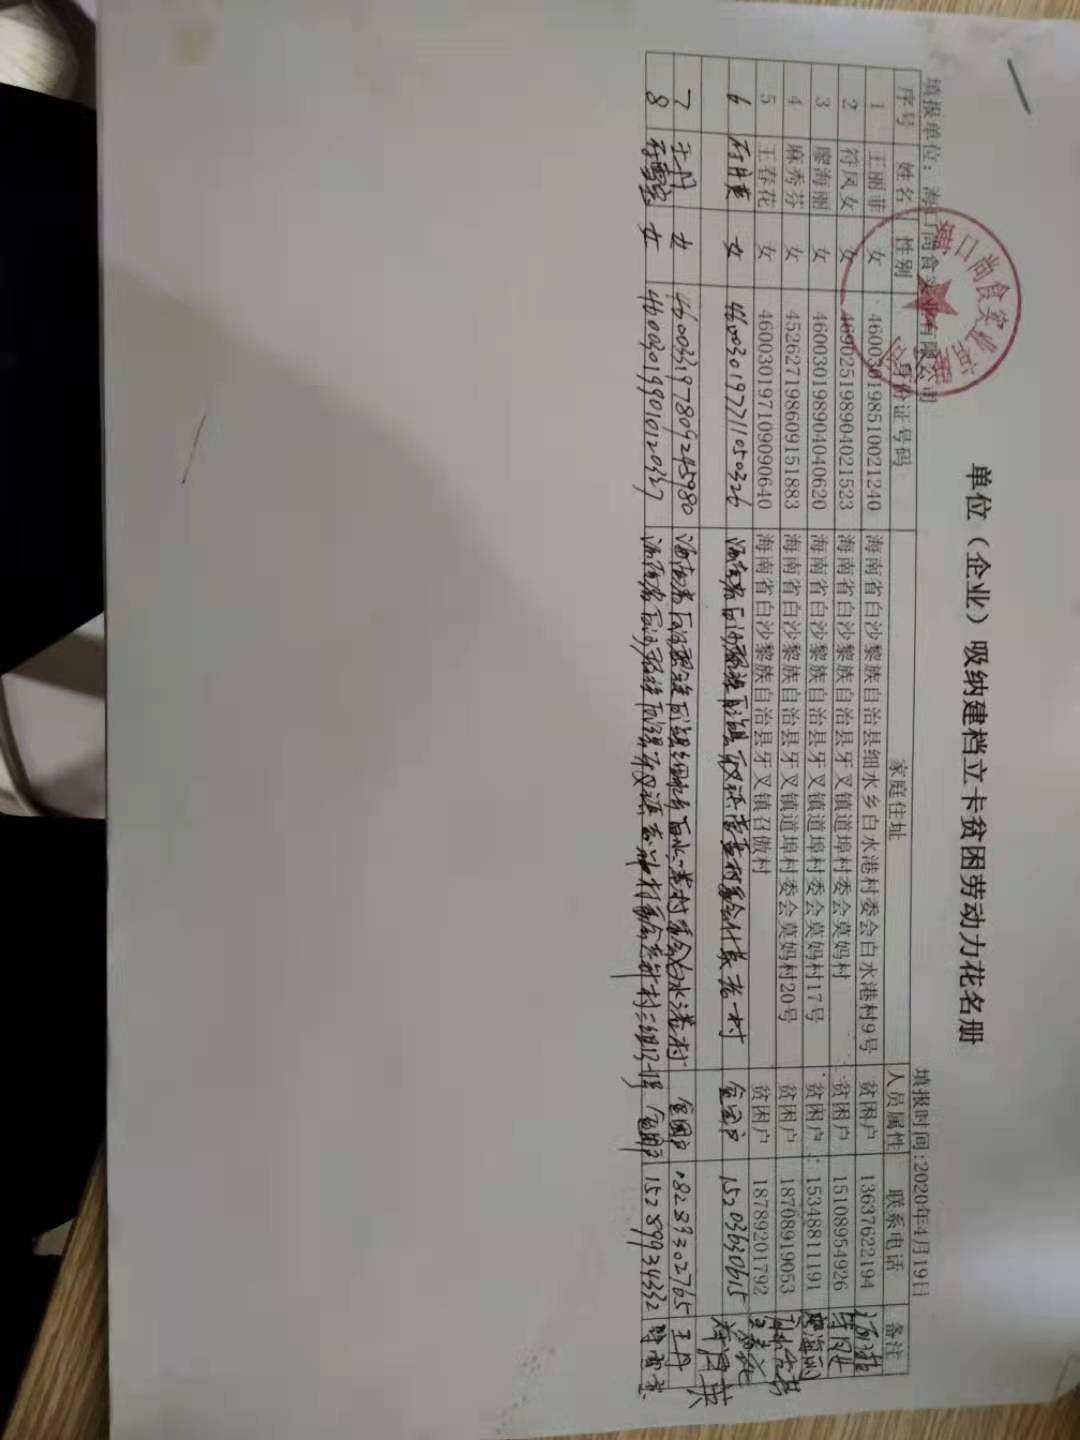 单位（企业）吸纳建档立卡贫困劳动力花名册
填报单位：海口尚食实业有限公司 填报时间:2020年4月19日
序号 姓名 性别 身份证号码 家庭住址 人员属性 联系电话 备注
1 王丽菲 女 460030198510021240 海南省白沙黎族自治县细水乡白水港村委会白水港村9号 贫困户 13637622194
2 符凤女 女 469025198904021523 海南省白沙黎族自治县牙叉镇道埠村委会莫妈村 贫困户 15108954926
3 廖海丽 女 460030198904040620 海南省白沙黎族自治县牙叉镇道埠村委会莫妈村17号 贫困户 15348811191 廖海丽
4 麻秀芬 女 452627198609151883 海南省白沙黎族自治县牙叉镇道埠村委会莫妈村20号 贫困户 18708919053 麻秀芬
5 王春花 女 460030197109090640 海南省白沙黎族自治县牙叉镇召傲村 贫困户 18789201792 王春花
6 符月英 女 460030197711050326 海南省白沙黎族自治县 村委会 一村 贫困户 15203630615 符月英
7 王丹 女 460033197809245980 海南省白沙黎族自治县细水乡白水港村委会白水港村 贫困户 08289302765 王丹
8 女 460030199010120327 海南省白沙黎族自治县牙叉镇 村委会 村二组 号 贫困户 15289934332
海口尚食实业有限公司